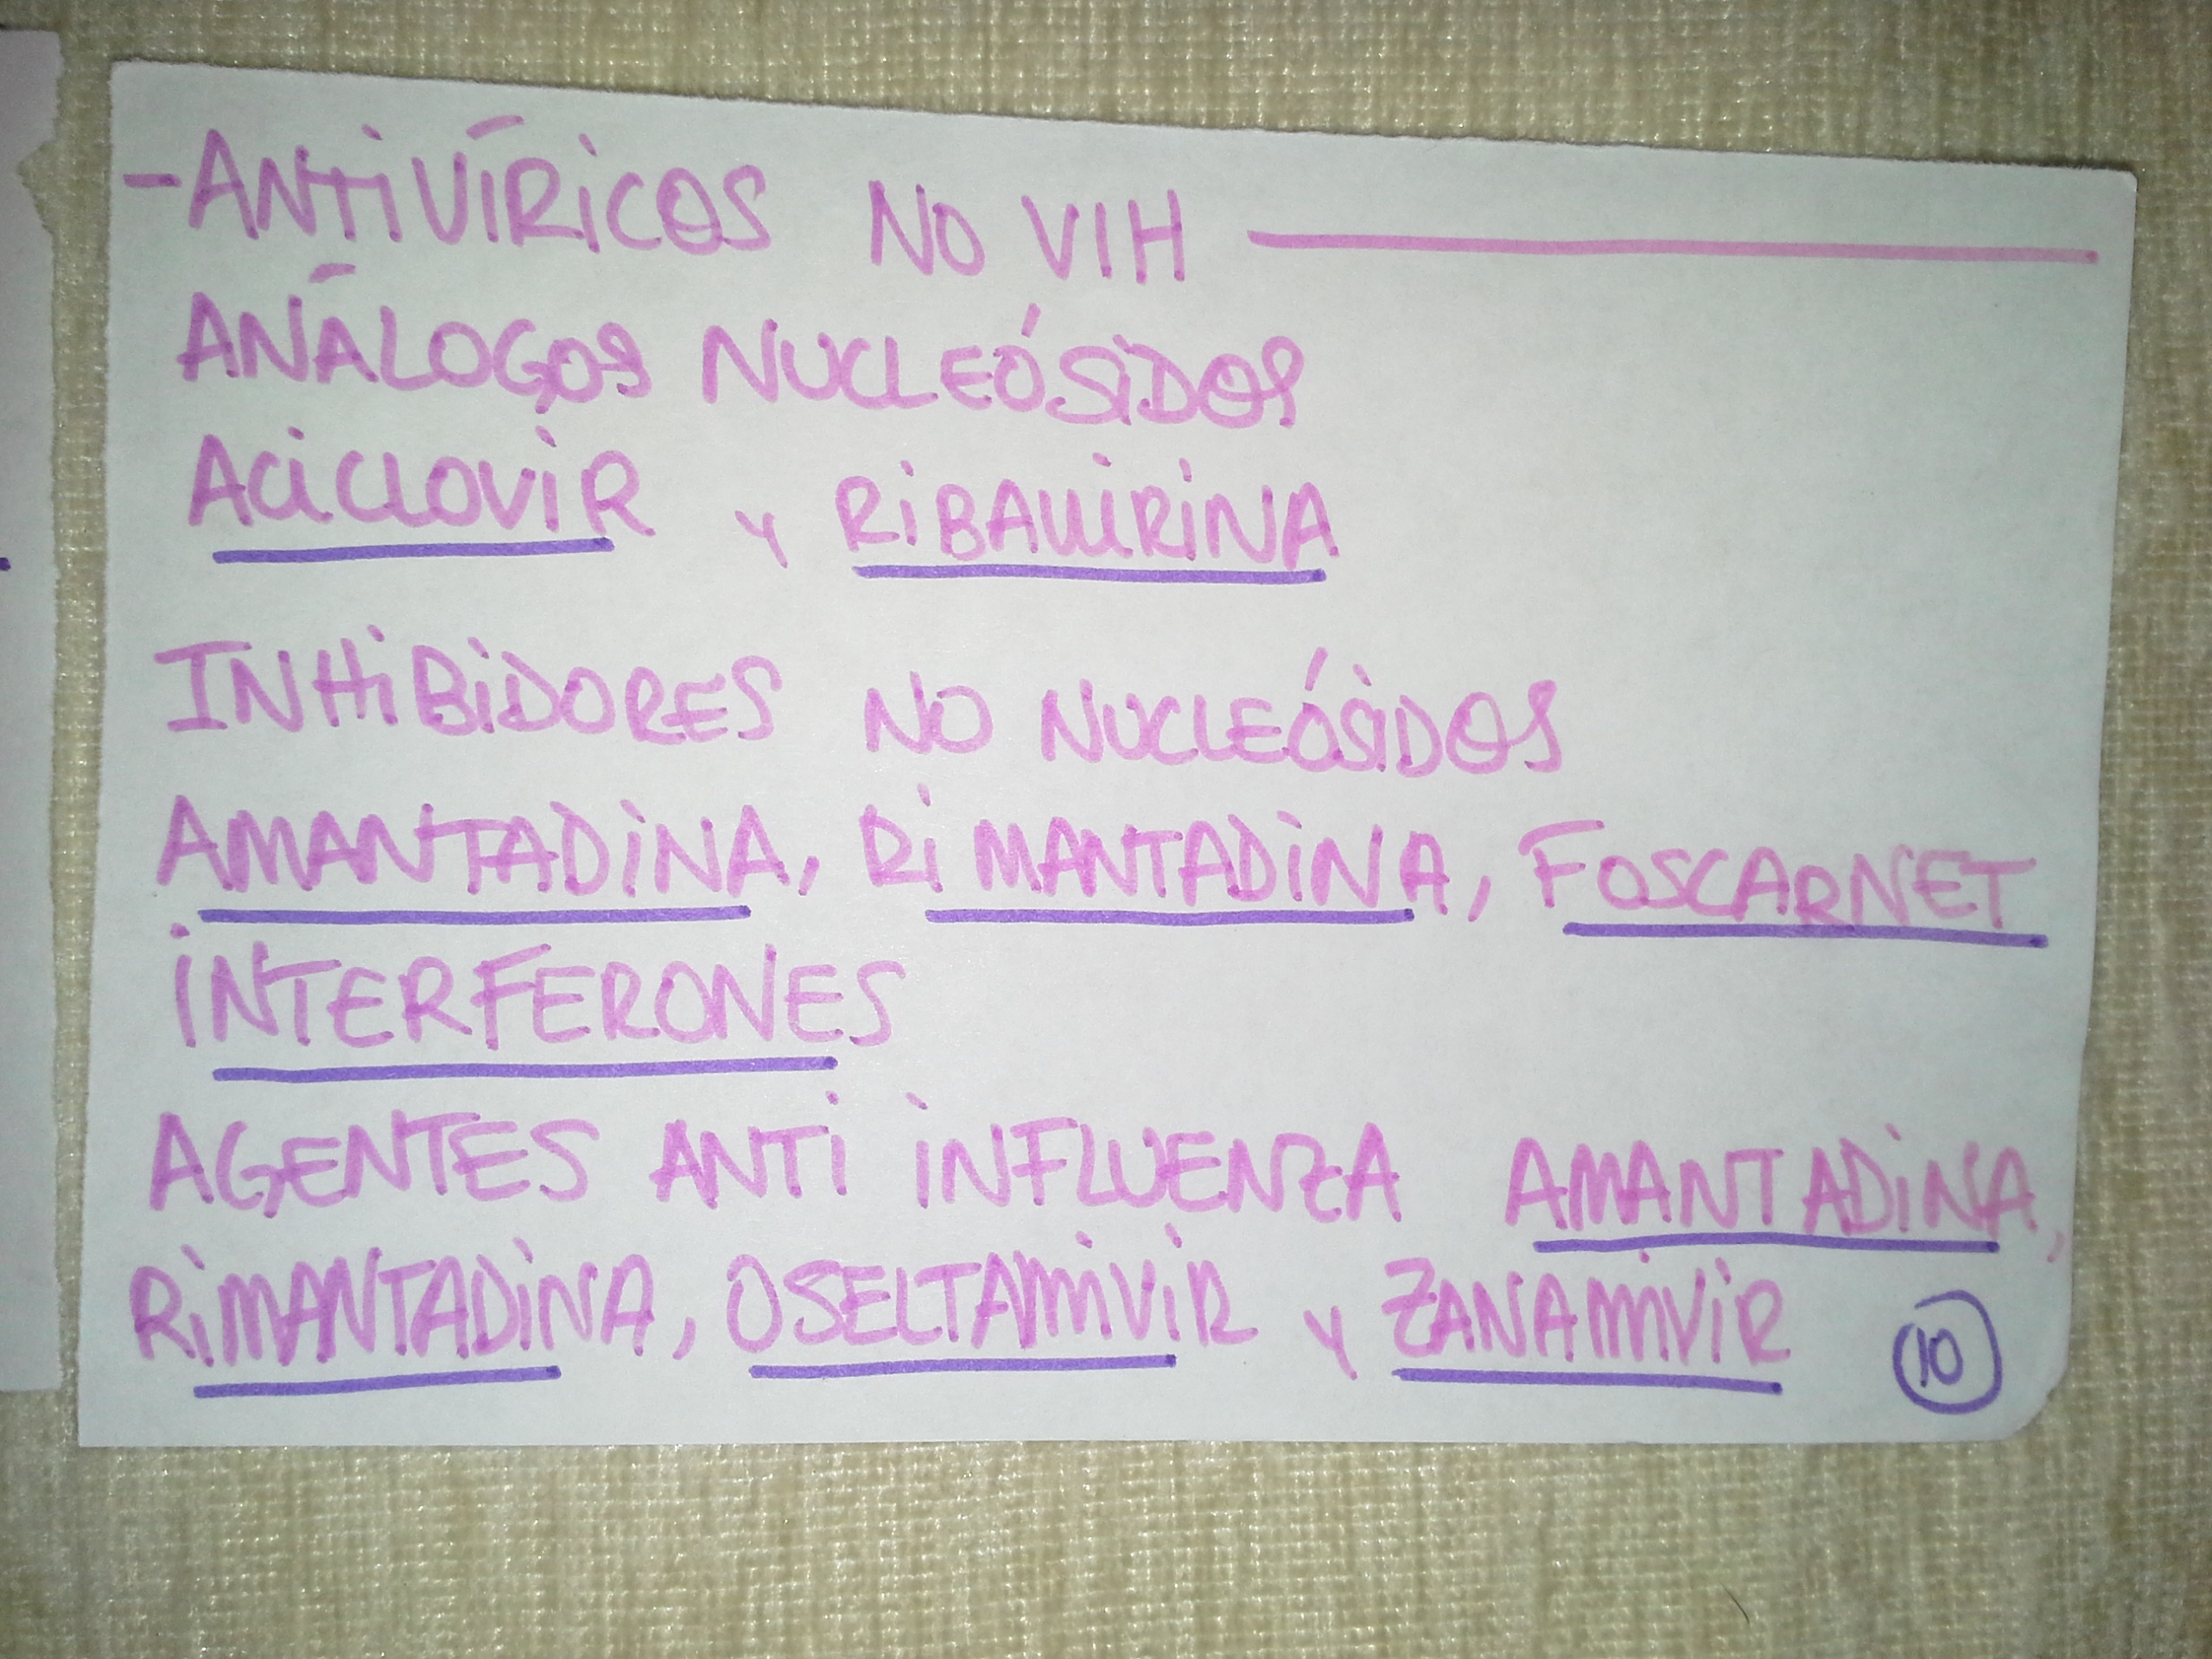 -ANTIVÍRICOS NO VIH
ANÁLOGOS NUCLEÓSIDOS
ACICLOVIR Y RIBAVIRINA
INHIBIDORES NO NUCLEÓSIDOS
AMANTADINA, RIMANTADINA, FOSCARNET
INTERFERONES
AGENTES ANTI INFLUENZA AMANTADINA,
RIMANTADINA, OSELTAMIVIR Y ZANAMIVIR
10